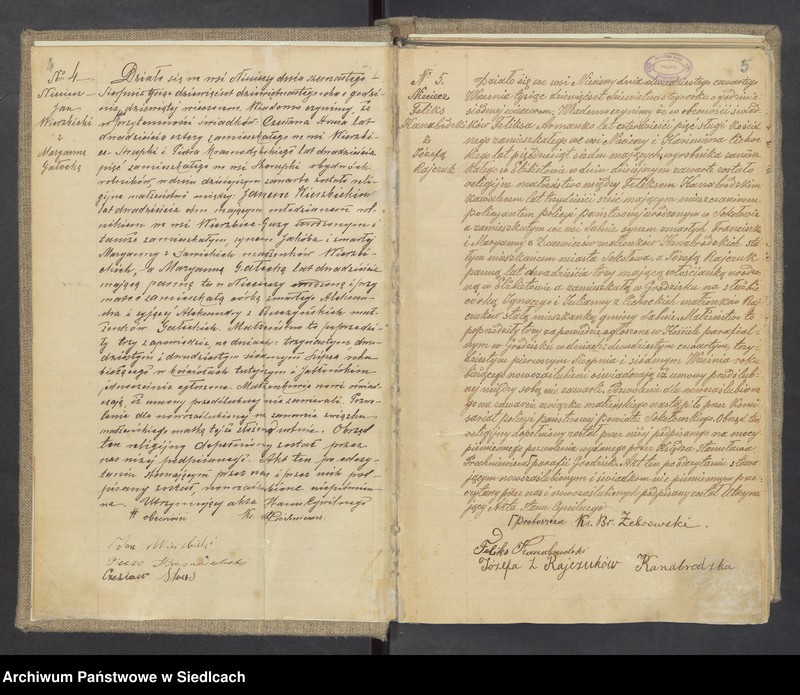 4
№ 4
Nieciecz
Jan
Wierzbicki
z
Maryanną
Gałecką
Działo się na wsi Niecieczy dnia szesnastego
Sierpnia tysiąc dziewięćset dziewiętnastego roku o godzi-
nie dziewiątej wieczorem. Wiadomo czynimy, że
w przytomności świadków: Czesława Stosa lat
dwadzieścia cztery zamieszkałego na wsi Wierzbi-
ce-Strupki i Piotra lat dwadzieścia
pięć zamieszkałego na wsi Skorupki obydwóch
rolników, w dniu dzisiejszym zawarte zostało reli-
gijne małżeństwo między: Janem Wierzbickim
lat dwadzieścia ośm mającym młodzianem rol-
nikiem na wsi Wierzbice-Guzy urodzonym i
tamże zamieszkałym, synem Jakóba i zmarłej
Maryanny z małżonków Wierzbi-
ckich, a Maryanną Gałecką lat dwadzieścia
mającą panną tu w Niecieczy urodzoną i przy
matce zamieszkałą córką zmarłego Aleksan-
dra i żyjącej Aleksandry z Ruszyńskich mał-
żonków Gałeckich. Małżeństwo to poprzedzi-
ły trzy zapowiedzie, na dniach: trzynastym dwu-
dziestym i dwudziestym siódmym Lipca roku
bieżącego w kościołach tutejszym i Jabłońskim
jednocześnie ogłoszone. Małżonkowie nowi oświad-
czają, iż umowy przedślubnej nie zawierali. Pozwo-
lenie dla nowozaślubionej na zawarcie związku
małżeńskiego matka tejże złożyła ustnie. Obrząd
ten religijny dopełniony został przez
nas niżej podpisanego. Akt ten po odczy-
taniu stawającym przez nas i przez nich pod-
pisany został, nowozaślubiona niepiśmien-
na. Utrzymujący akta Stanu Cywilnego
# obecności Ks.
Jan Wierzbicki
Piotr
Czesław Stos
5
№ 5.
Nieciecz
Feliks
Kanabrodzki
z
Józefą
Rajczuk
Działo się we wsi Niecieczy dnia dwudziestego czwartego
Września tysiąc dziewięćset dziewiętnastego roku o godzinie
siódmej wieczorem. Wiadomo czynimy, że w obecności świad-
ków Feliksa Armanka lat czterdzieści pięć sługi kościel-
nego zamieszkałego we wsi Nieciecz i Kazimierza Cichoc-
kiego lat pięćdziesiąt siedm mających wyrobnika zamiesz-
kałego w Elżbietowie w dniu dzisiejszym zawarte zostało
religijne małżeństwo między Feliksem Kanabrodzkim
kawalerem lat trzydzieści sześć mającym mieszczaninem
policjantem policji państwowej urodzonym w Sokołowie
a zamieszkałym we wsi Sabnie synem zmarłych Franciszka
i Maryanny z małżonków Kanabrodzkich sta-
łym mieszkańcem miasta Sokołowa, a Józefą Rajczuk
panną lat dwadzieścia trzy mającą włościanką urodzo-
ną w Elżbietowie a zamieszkałą w Grodzisku na służbie
córką Ignacego i Julianny z Cichockich małżonków Raj-
czuków stałą mieszkanką gminy Sabnie. Małżeństwo to
poprzedziły trzy zapowiedzie ogłoszone w Kościele parafial-
nym w Grodzisku w dniach: dwudziestym czwartym, trzy-
dziestym pierwszym Sierpnia i siódmym Września roku
bieżącego nowozaślubieni oświadczają że umowy przedślub-
nej między sobą nie zawarli. Pozwolenie dla nowozaślubione-
go na zawarcie związku małżeńskiego nastąpiło przez Komi-
sariat policji państwowej powiatu Sokołowskiego. Obrząd ten
religijny dopełniony został przez niżej podpisanego na mocy
piśmiennego pozwolenia wydanego przez Księdza Stanisława
parafii Grodzisk. Akt ten po odczytaniu stawa-
jącym nowozaślubionym i świadkom nie piśmiennym prze-
czytany przez nas i nowozaślubionych podpisany został. Utrzymu-
jący Akta Stanu Cywilnego
Proboszcz Ks. Br. Żebrowski.
Feliks Kanabrodzki
Józefa z Rajczuków Kanabrodzka
Archiwum Państwowe w Siedlcach